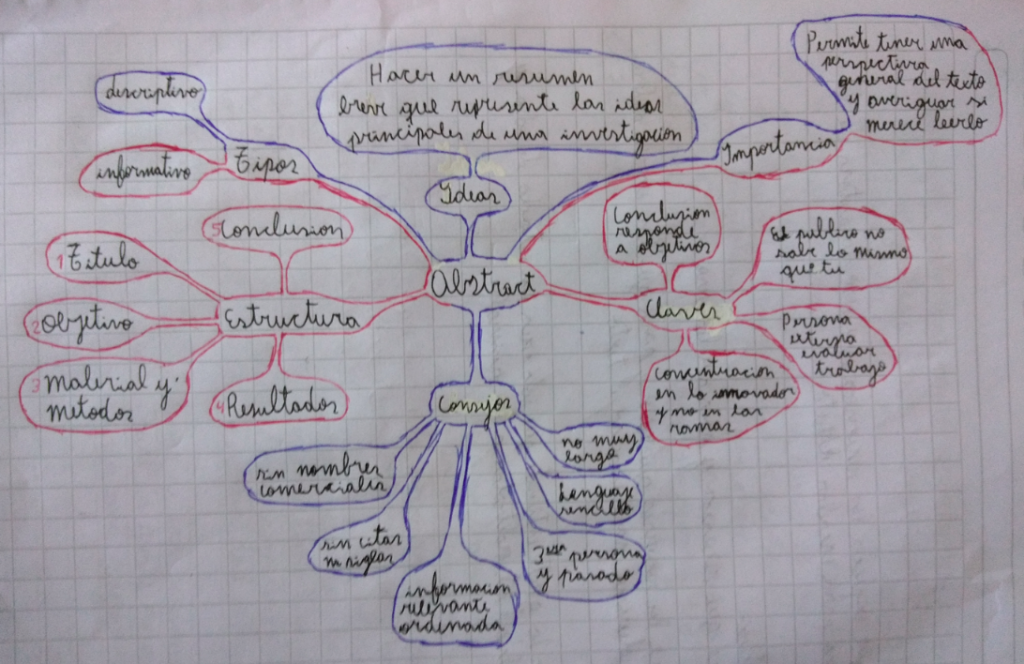 descriptivo
informativo
Tipos
Hacer un resumen
breve que represente las ideas
principales de una investigacion
Ideas
Permite tener una
perspectiva
general del texto
y averiguar si
merece leerlo
Importancia
Abstract
5 Conclusion
1 Titulo
2 Objetivo
3 Material y
Metodos
4 Resultados
Estructura
Conclusion
responde
a objetivos
El publico no
sabe lo mismo
que tu
Claves
Persona
externa
evaluar
trabajo
Concentracion
en lo innovador
y no en las
ramas
Consejos
sin nombres
comerciales
sin citas
ni siglas
informacion
relevante
ordenada
3era persona
y pasado
Lenguaje
sencillo
no muy
largo